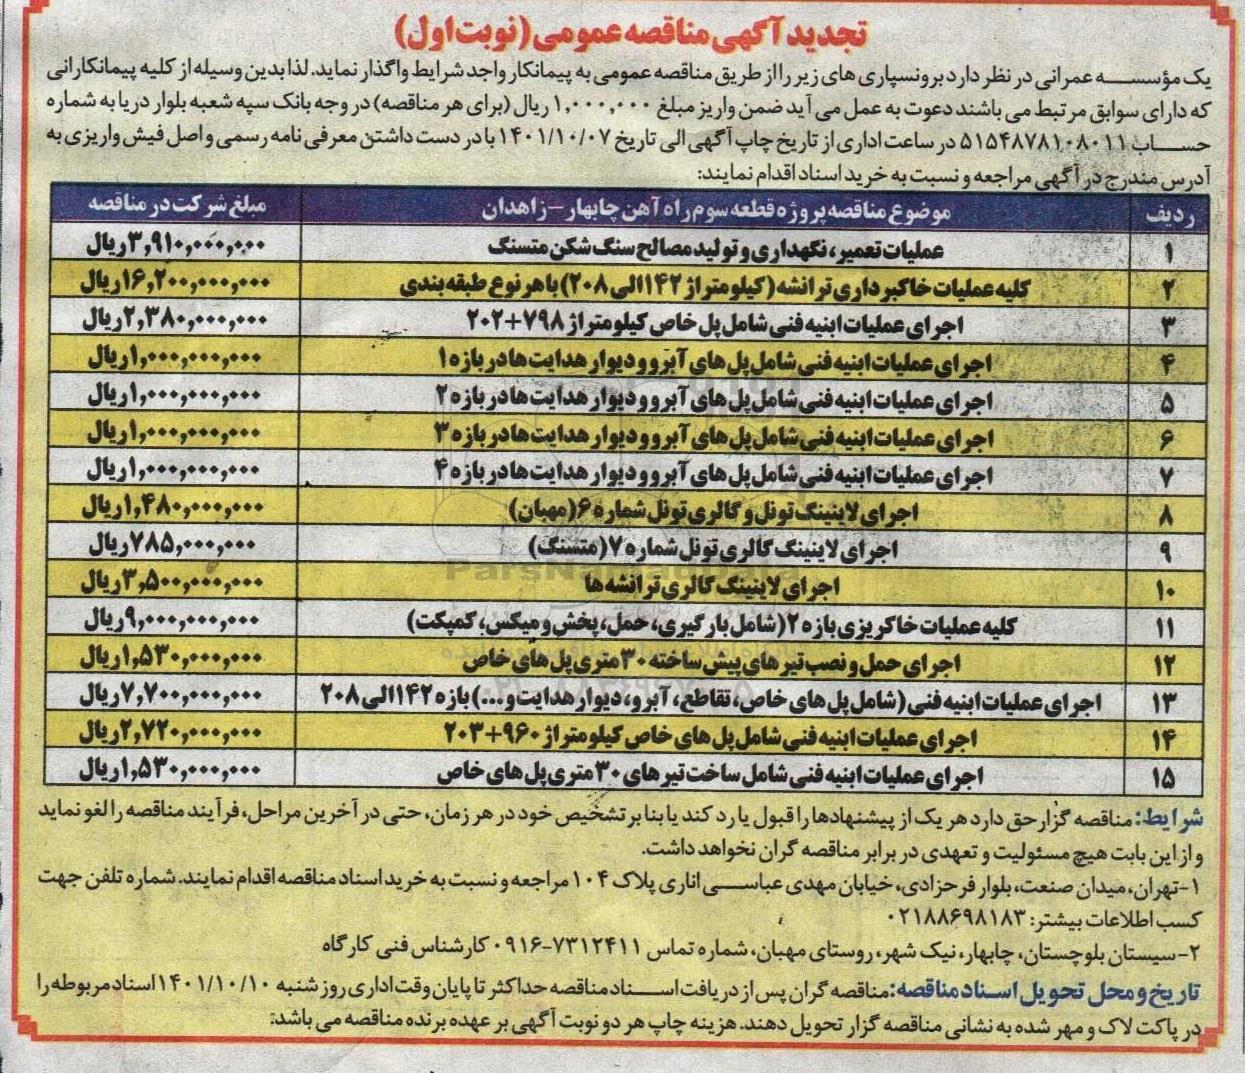 تجدید آگهی مناقصه عمومی (نوبت اول)
یک مؤسسه عمرانی در نظر دارد برونسپاری های زیر را از طریق مناقصه عمومی به پیمانکار واجد شرایط واگذار نماید. لذا بدین وسیله از کلیه پیمانکارانی
که دارای سوابق مرتبط می باشند دعوت به عمل می آید ضمن واریز مبلغ ۱,۰۰۰,۰۰۰ ریال (برای هر مناقصه) در وجه بانک سپه شعبه بلوار دریا به شماره
حساب ۵۱۵۴۸۷۸۱۰۸۰۱۱ در ساعت اداری از تاریخ چاپ آگهی الی تاریخ ۱۴۰۱/۱۰/۰۷ با در دست داشتن معرفی نامه رسمی و اصل فیش واریزی به
آدرس مندرج در آگهی مراجعه و نسبت به خرید اسناد اقدام نمایند:
ردیف موضوع مناقصه پروژه قطعه سوم راه آهن چابهار – زاهدان مبلغ شرکت در مناقصه
۱ عملیات تعمیر، نگهداری و تولید مصالح سنگ شکن متسنگ ۳,۹۱۰,۰۰۰,۰۰۰ ریال
۲ کلیه عملیات خاکبرداری ترانشه (کیلومتراژ ۱۴۲ الی ۲۰۸) با هر نوع طبقه بندی ۱۶,۲۰۰,۰۰۰,۰۰۰ ریال
۳ اجرای عملیات ابنیه فنی شامل پل خاص کیلومتراژ ۷۹۸+۲۰۲ ۲,۳۸۰,۰۰۰,۰۰۰ ریال
۴ اجرای عملیات ابنیه فنی شامل پل های آبرو و دیوار هدایت ها در بازه ۱ ۱,۰۰۰,۰۰۰,۰۰۰ ریال
۵ اجرای عملیات ابنیه فنی شامل پل های آبرو و دیوار هدایت ها در بازه ۲ ۱,۰۰۰,۰۰۰,۰۰۰ ریال
۶ اجرای عملیات ابنیه فنی شامل پل های آبرو و دیوار هدایت ها در بازه ۳ ۱,۰۰۰,۰۰۰,۰۰۰ ریال
۷ اجرای عملیات ابنیه فنی شامل پل های آبرو و دیوار هدایت ها در بازه ۴ ۱,۰۰۰,۰۰۰,۰۰۰ ریال
۸ اجرای لاینینگ تونل و گالری تونل شماره ۶ (مهبان) ۱,۴۸۰,۰۰۰,۰۰۰ ریال
۹ اجرای لاینینگ گالری تونل شماره ۷ (متسنگ) ۷۸۵,۰۰۰,۰۰۰ ریال
۱۰ اجرای لاینینگ گالری ترانشه ها ۳,۵۰۰,۰۰۰,۰۰۰ ریال
۱۱ کلیه عملیات خاکریزی بازه ۲ (شامل بارگیری، حمل، پخش و میکس، کمپکت) ۹,۰۰۰,۰۰۰,۰۰۰ ریال
۱۲ اجرای حمل و نصب تیرهای پیش ساخته ۳۰ متری پل های خاص ۱,۵۳۰,۰۰۰,۰۰۰ ریال
۱۳ اجرای عملیات ابنیه فنی (شامل پل های خاص، تقاطع، آبرو، دیوار هدایت و ...) بازه ۱۴۲ الی ۲۰۸ ۷,۷۰۰,۰۰۰,۰۰۰ ریال
۱۴ اجرای عملیات ابنیه فنی شامل پل های خاص کیلومتراژ ۹۶۰+۲۰۳ ۲,۷۲۰,۰۰۰,۰۰۰ ریال
۱۵ اجرای عملیات ابنیه فنی شامل ساخت تیرهای ۳۰ متری پل های خاص ۱,۵۳۰,۰۰۰,۰۰۰ ریال
شرایط: مناقصه گزار حق دارد هر یک از پیشنهادها را قبول یا رد کند یا بنا بر تشخیص خود در هر زمان، حتی در آخرین مراحل، فرآیند مناقصه را لغو نماید
و از این بابت هیچ مسئولیت و تعهدی در برابر مناقصه گران نخواهد داشت.
۱- تهران، میدان صنعت، بلوار فرحزادی، خیابان مهدی عباسی اناری پلاک ۱۰۴ مراجعه و نسبت به خرید اسناد مناقصه اقدام نمایند. شماره تلفن جهت
کسب اطلاعات بیشتر: ۰۲۱۸۸۶۹۸۱۸۳
۲- سیستان بلوچستان، چابهار، نیک شهر، روستای مهبان، شماره تماس ۷۳۱۲۴۱۱-۰۹۱۶ کارشناس فنی کارگاه
تاریخ و محل تحویل اسناد مناقصه: مناقصه گران پس از دریافت اسناد مناقصه حداکثر تا پایان وقت اداری روز شنبه ۱۴۰۱/۱۰/۱۰ اسناد مربوطه را
در پاکت لاک و مهر شده به نشانی مناقصه گزار تحویل دهند. هزینه چاپ هر دو نوبت آگهی بر عهده برنده مناقصه می باشد: